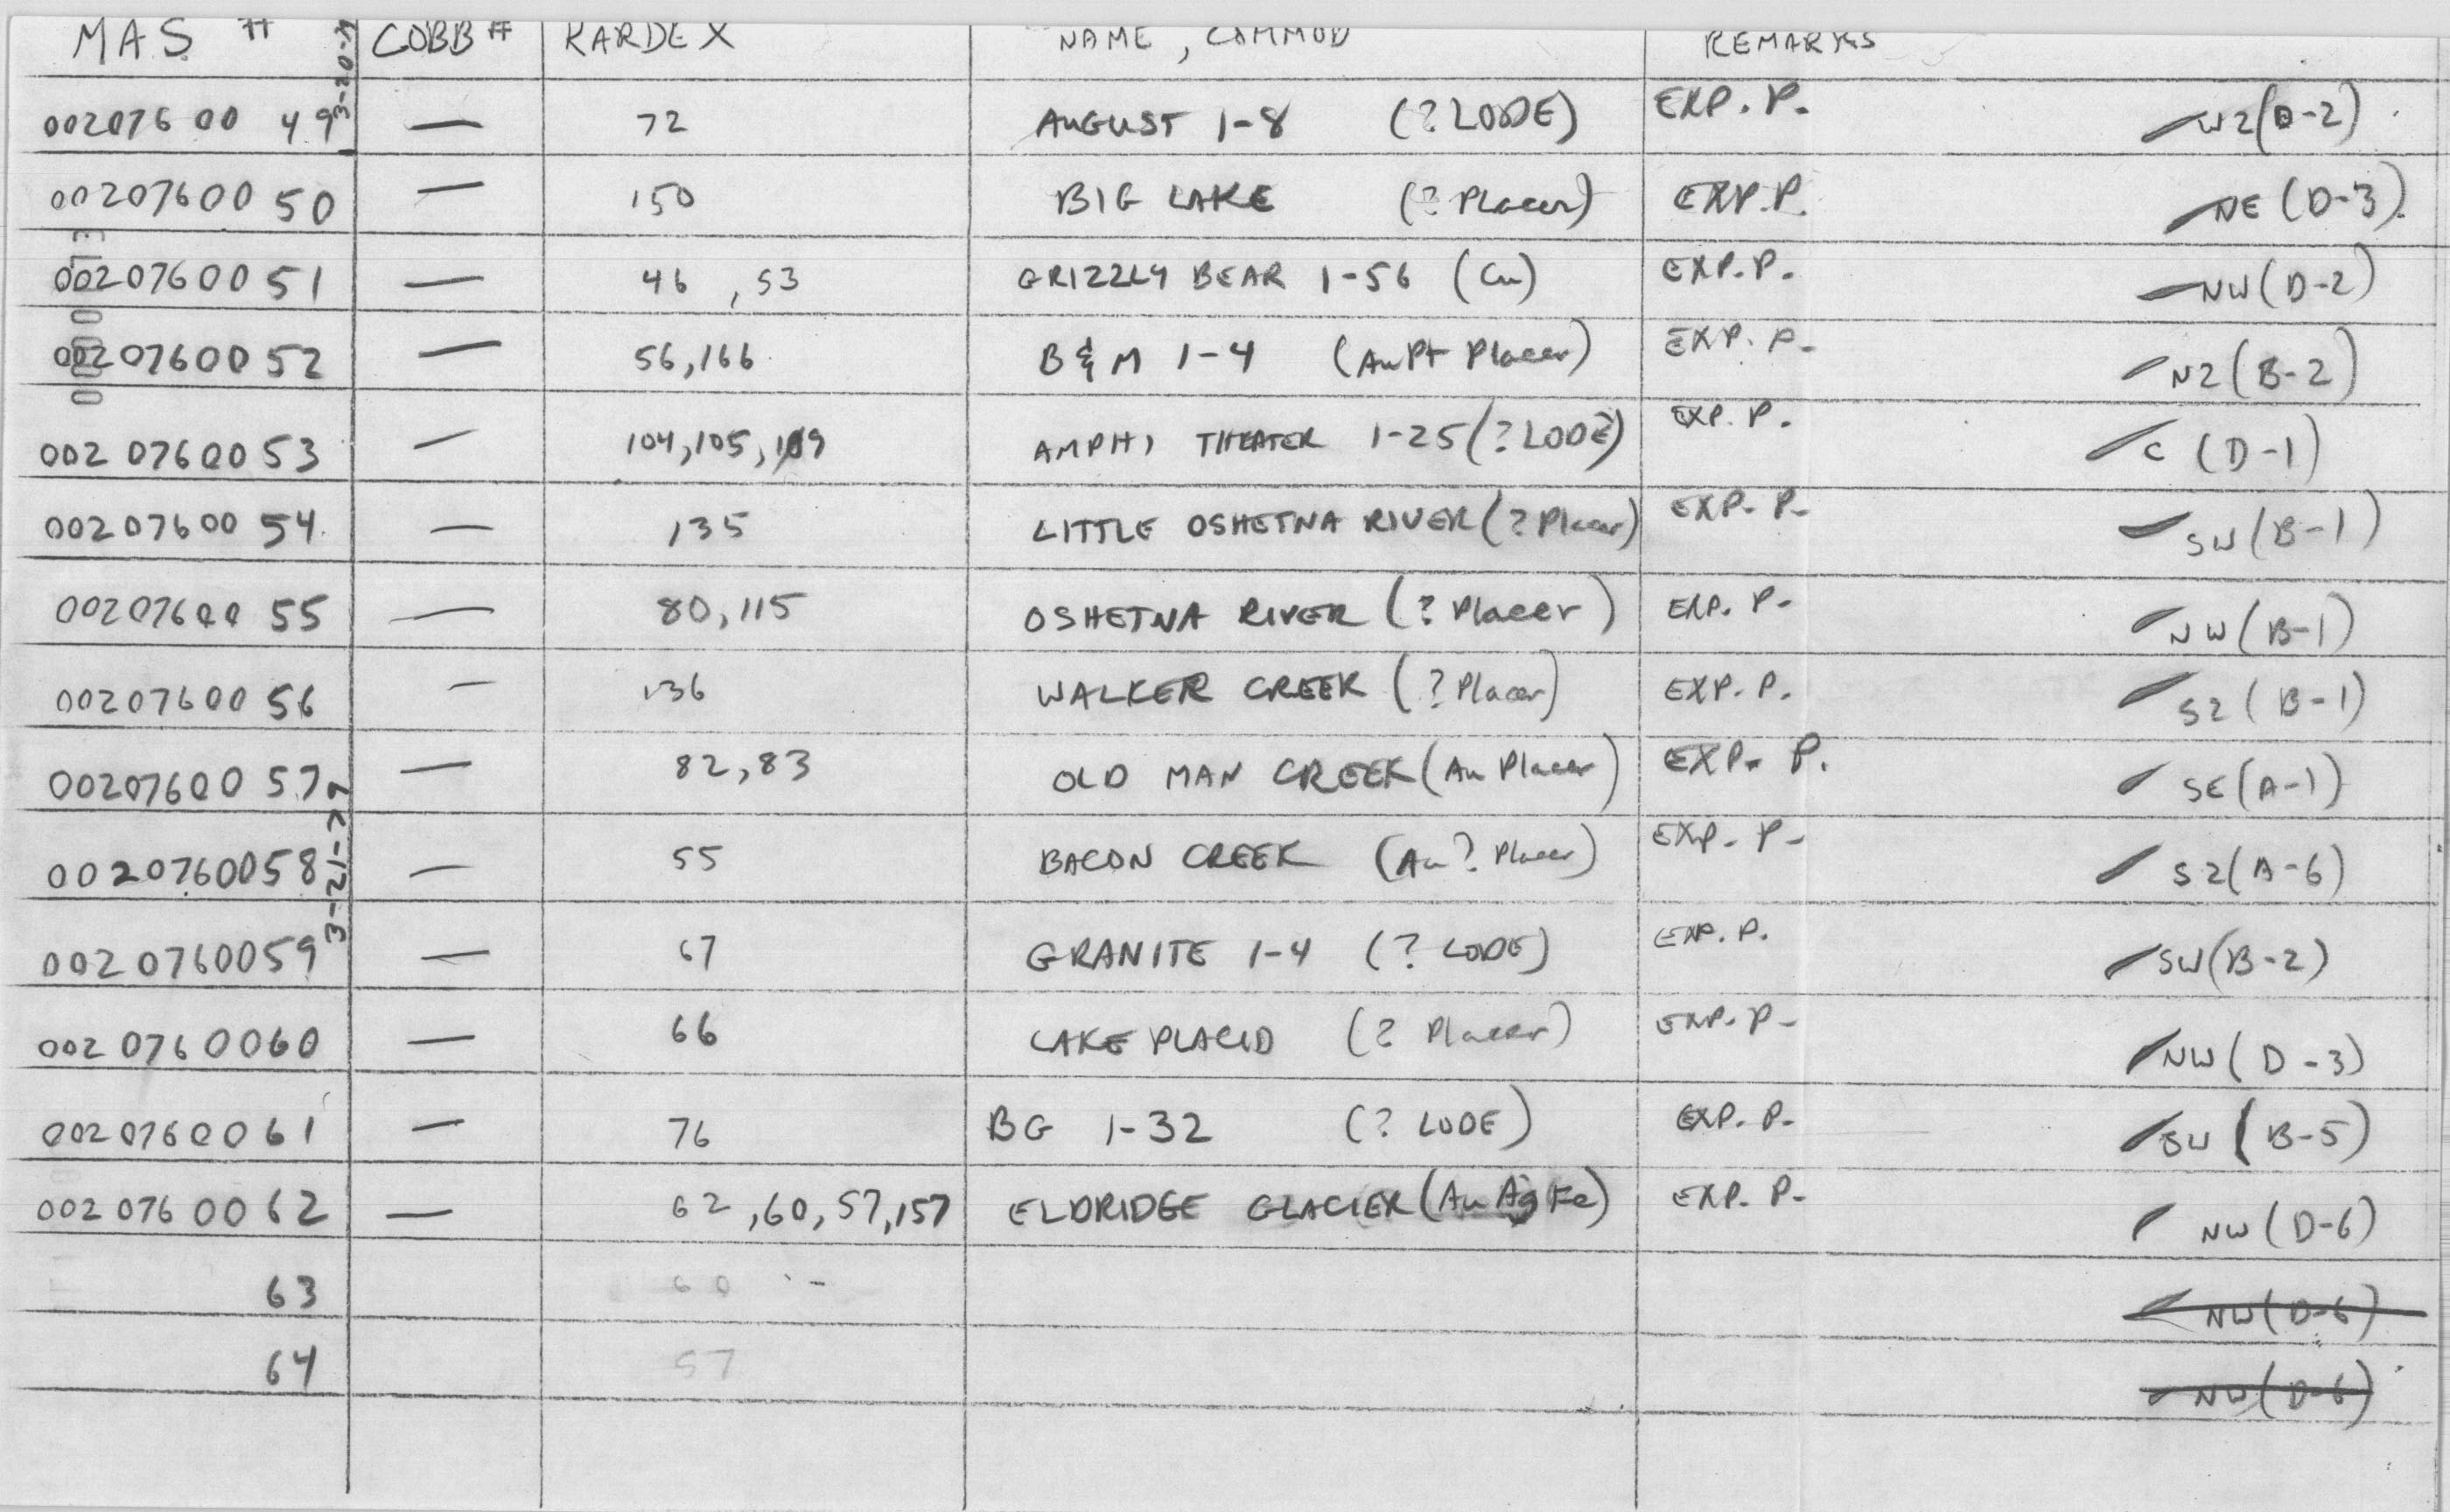 MAS # COBB # KARDEX NAME, COMMOD REMARKS
0020760049 — 72 AUGUST 1-8 (? LODE) EXP. P. W2 (D-2)
3-20-79
0020760050 — 150 BIG LAKE (? Placer) EXP. P. NE (D-3)
0020760051 — 46, 53 GRIZZLY BEAR 1-56 (Cu) EXP. P. NW (D-2)
0020760052 — 56, 166 B & M 1-4 (Au Pt Placer) EXP. P. N2 (B-2)
0020760053 — 104, 105, 109 AMPHI THEATER 1-25 (? LODE) EXP. P. C (D-1)
0020760054 — 135 LITTLE OSHETNA RIVER (? Placer) EXP. P. SW (B-1)
0020760055 — 80, 115 OSHETNA RIVER (? Placer) EXP. P. NW (B-1)
0020760056 — 136 WALKER CREEK (? Placer) EXP. P. S2 (B-1)
0020760057 — 82, 83 OLD MAN CREEK (Au Placer) EXP. P. SE (A-1)
0020760058 — 55 BACON CREEK (Au ? Placer) EXP. P. S2 (A-6)
3-21-79
0020760059 — 67 GRANITE 1-4 (? LODE) EXP. P. SW (B-2)
0020760060 — 66 LAKE PLACID (? Placer) EXP. P. NW (D-3)
0020760061 — 76 BG 1-32 (? LODE) EXP. P. SW (B-5)
0020760062 — 62, 60, 57, 157 ELDRIDGE GLACIER (Au Ag Fe) EXP. P. NW (D-6)
63 60 NW (D-6)
64 57 NW (D-6)